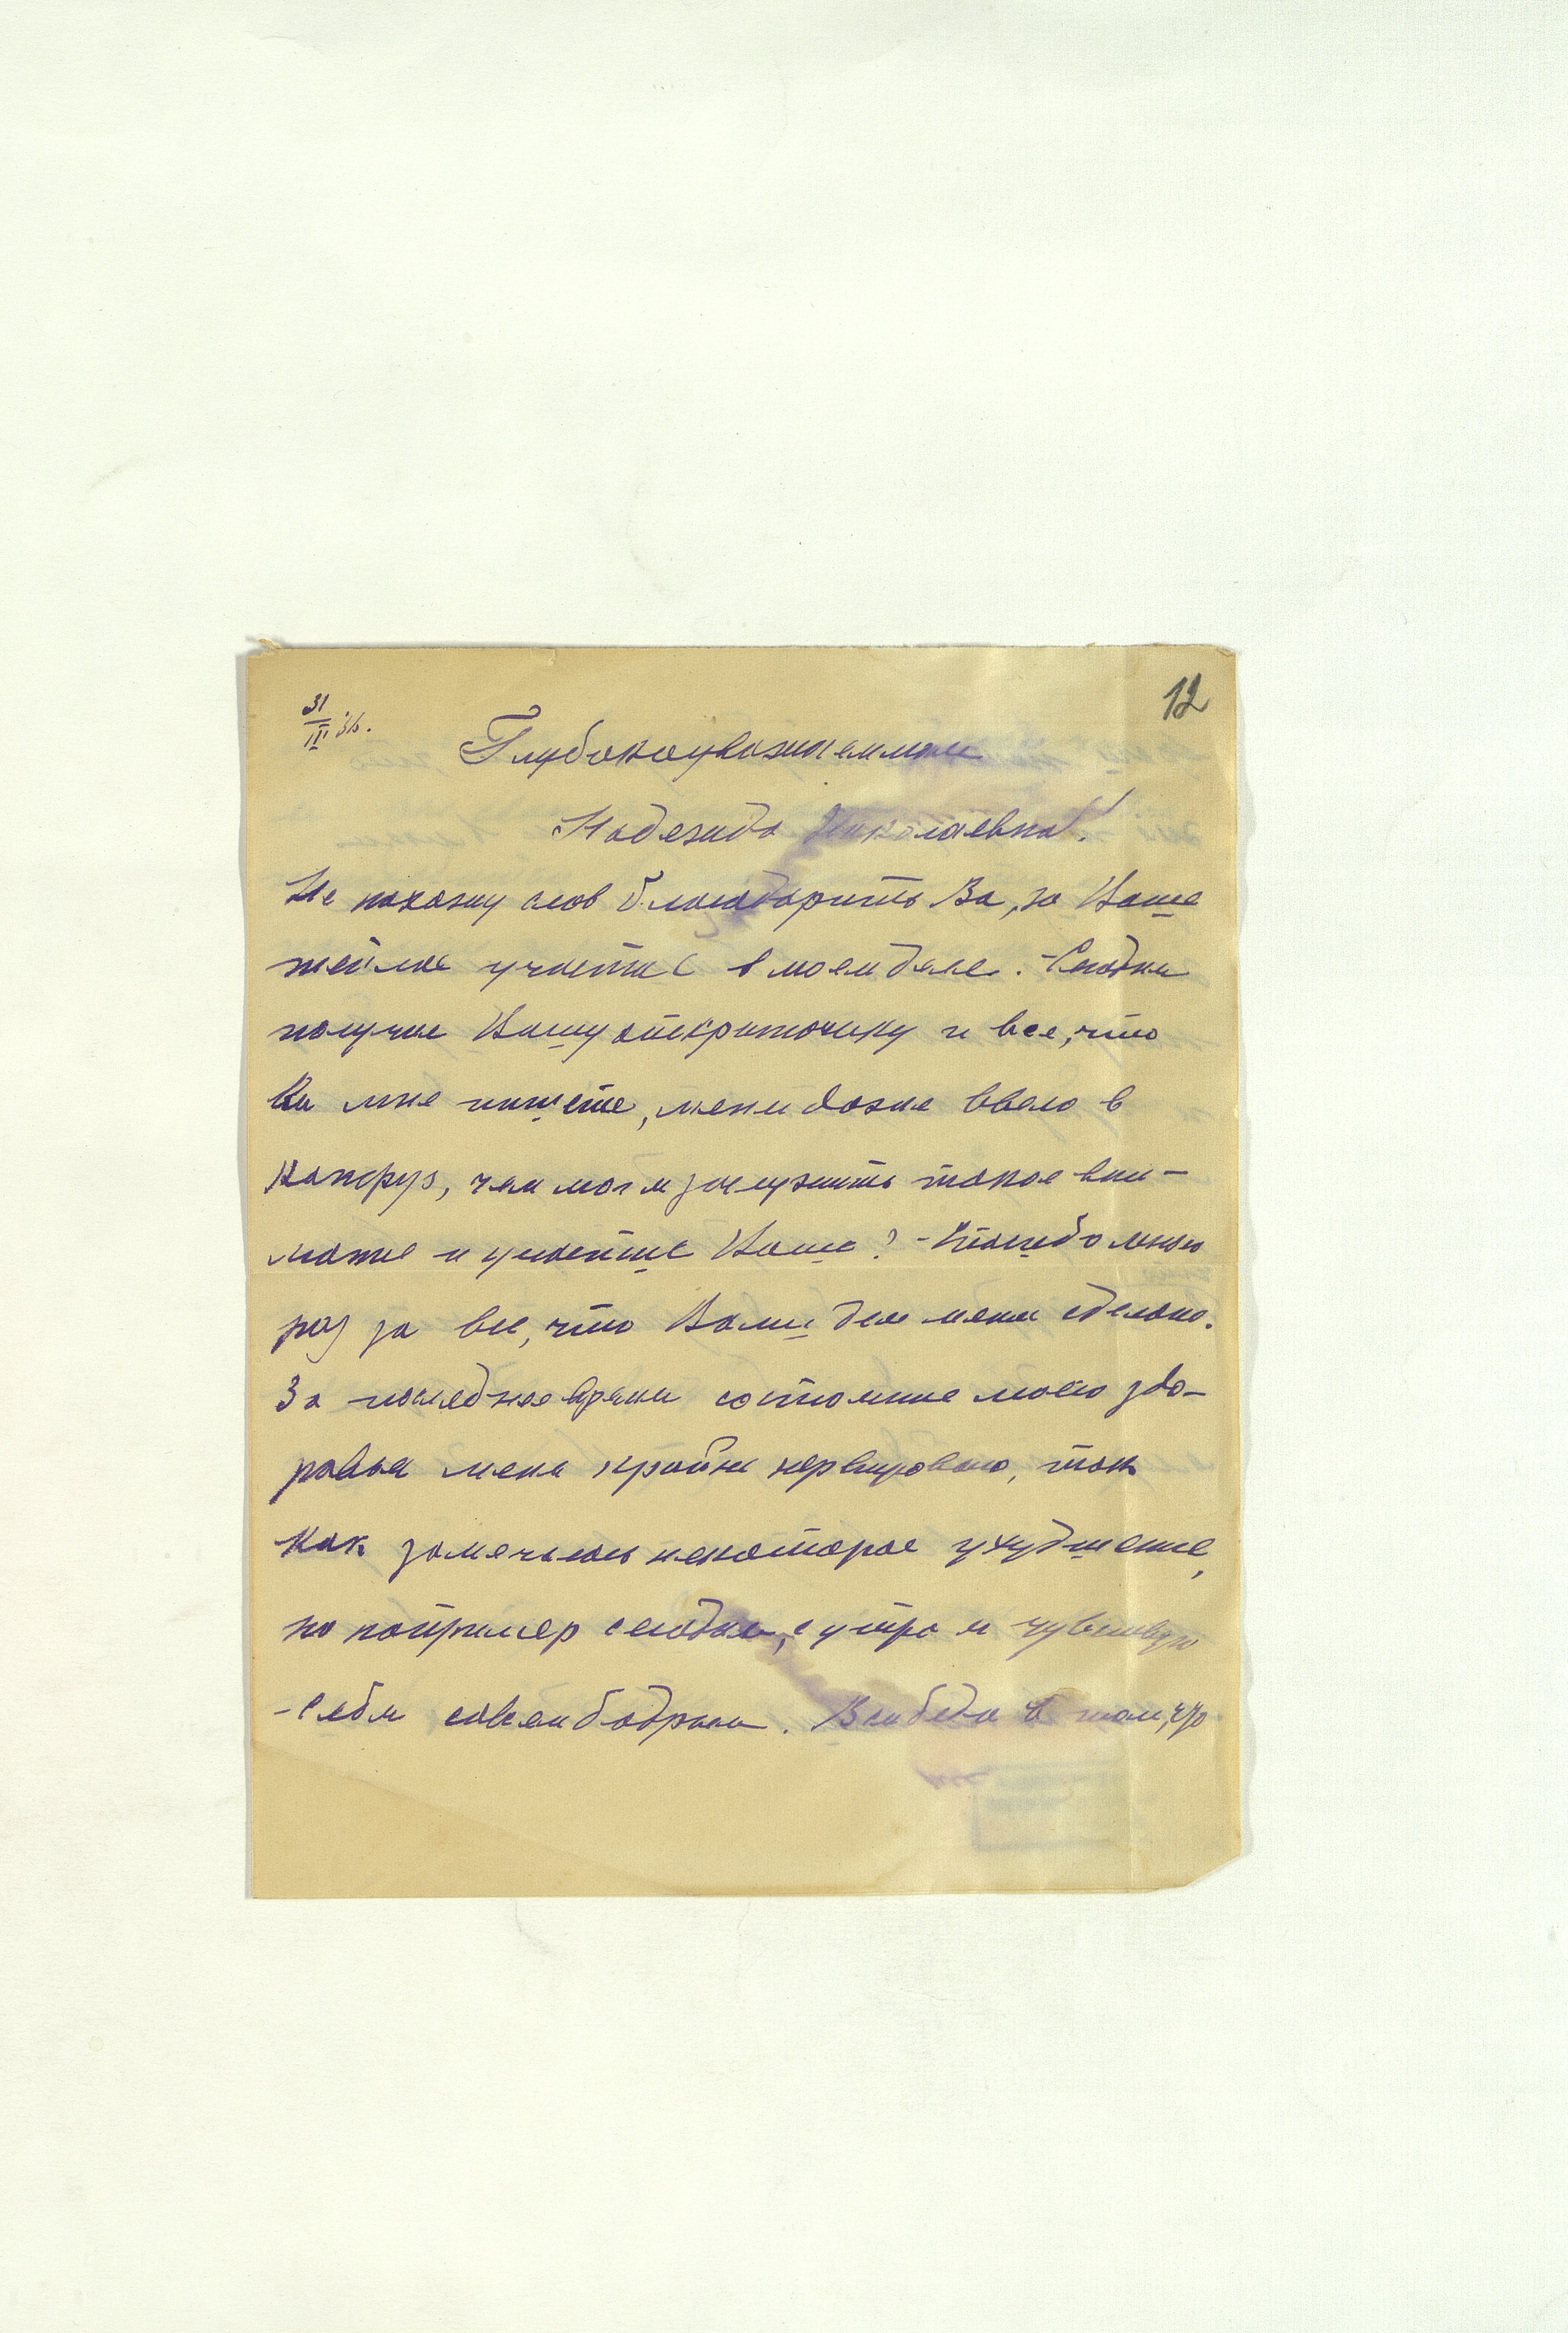 12
31/III 36.
Глубокоуважаемая
Надежда Николаевна!
Не нахожу слов благодарить Ва, за Ваше
теплое участие в моем деле. Сегодня
получил Вашу открыточку и все, что
Вы мне пишете, меня даже ввело в
конфуз, чем мог я заслужить такое вни-
мание и участие Ваше? - Спасибо много
раз за все, что Вами для меня сделано.
За последнее время состояние моего здо-
ровья меня крайне нервировало, так
как замечалось некоторое ухудшение,
но например сегодня, с утра я чувствую
себя совсем бодрым. Вся беда в том, что